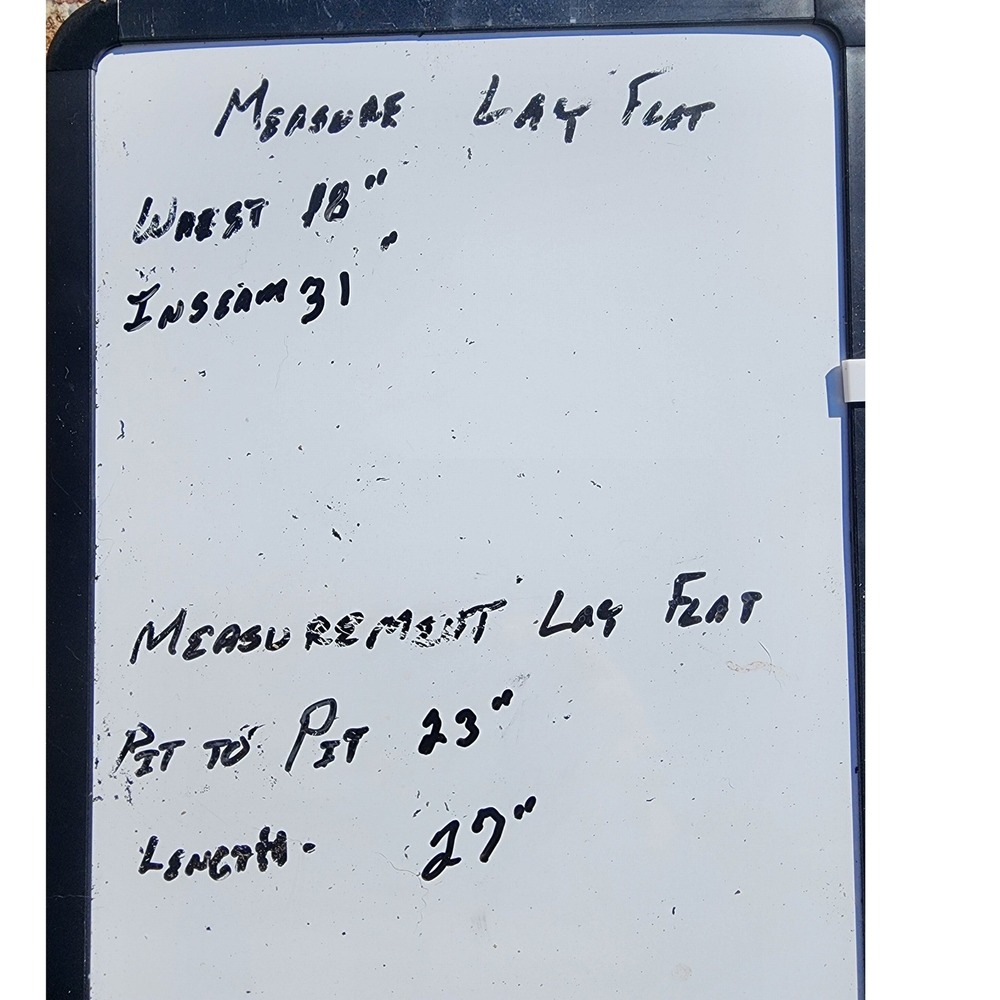 MEASURE LAY FLAT
WAIST 18"
INSEAM 31"
MEASUREMENT LAY FLAT
PIT TO PIT 23"
LENGTH- 27"